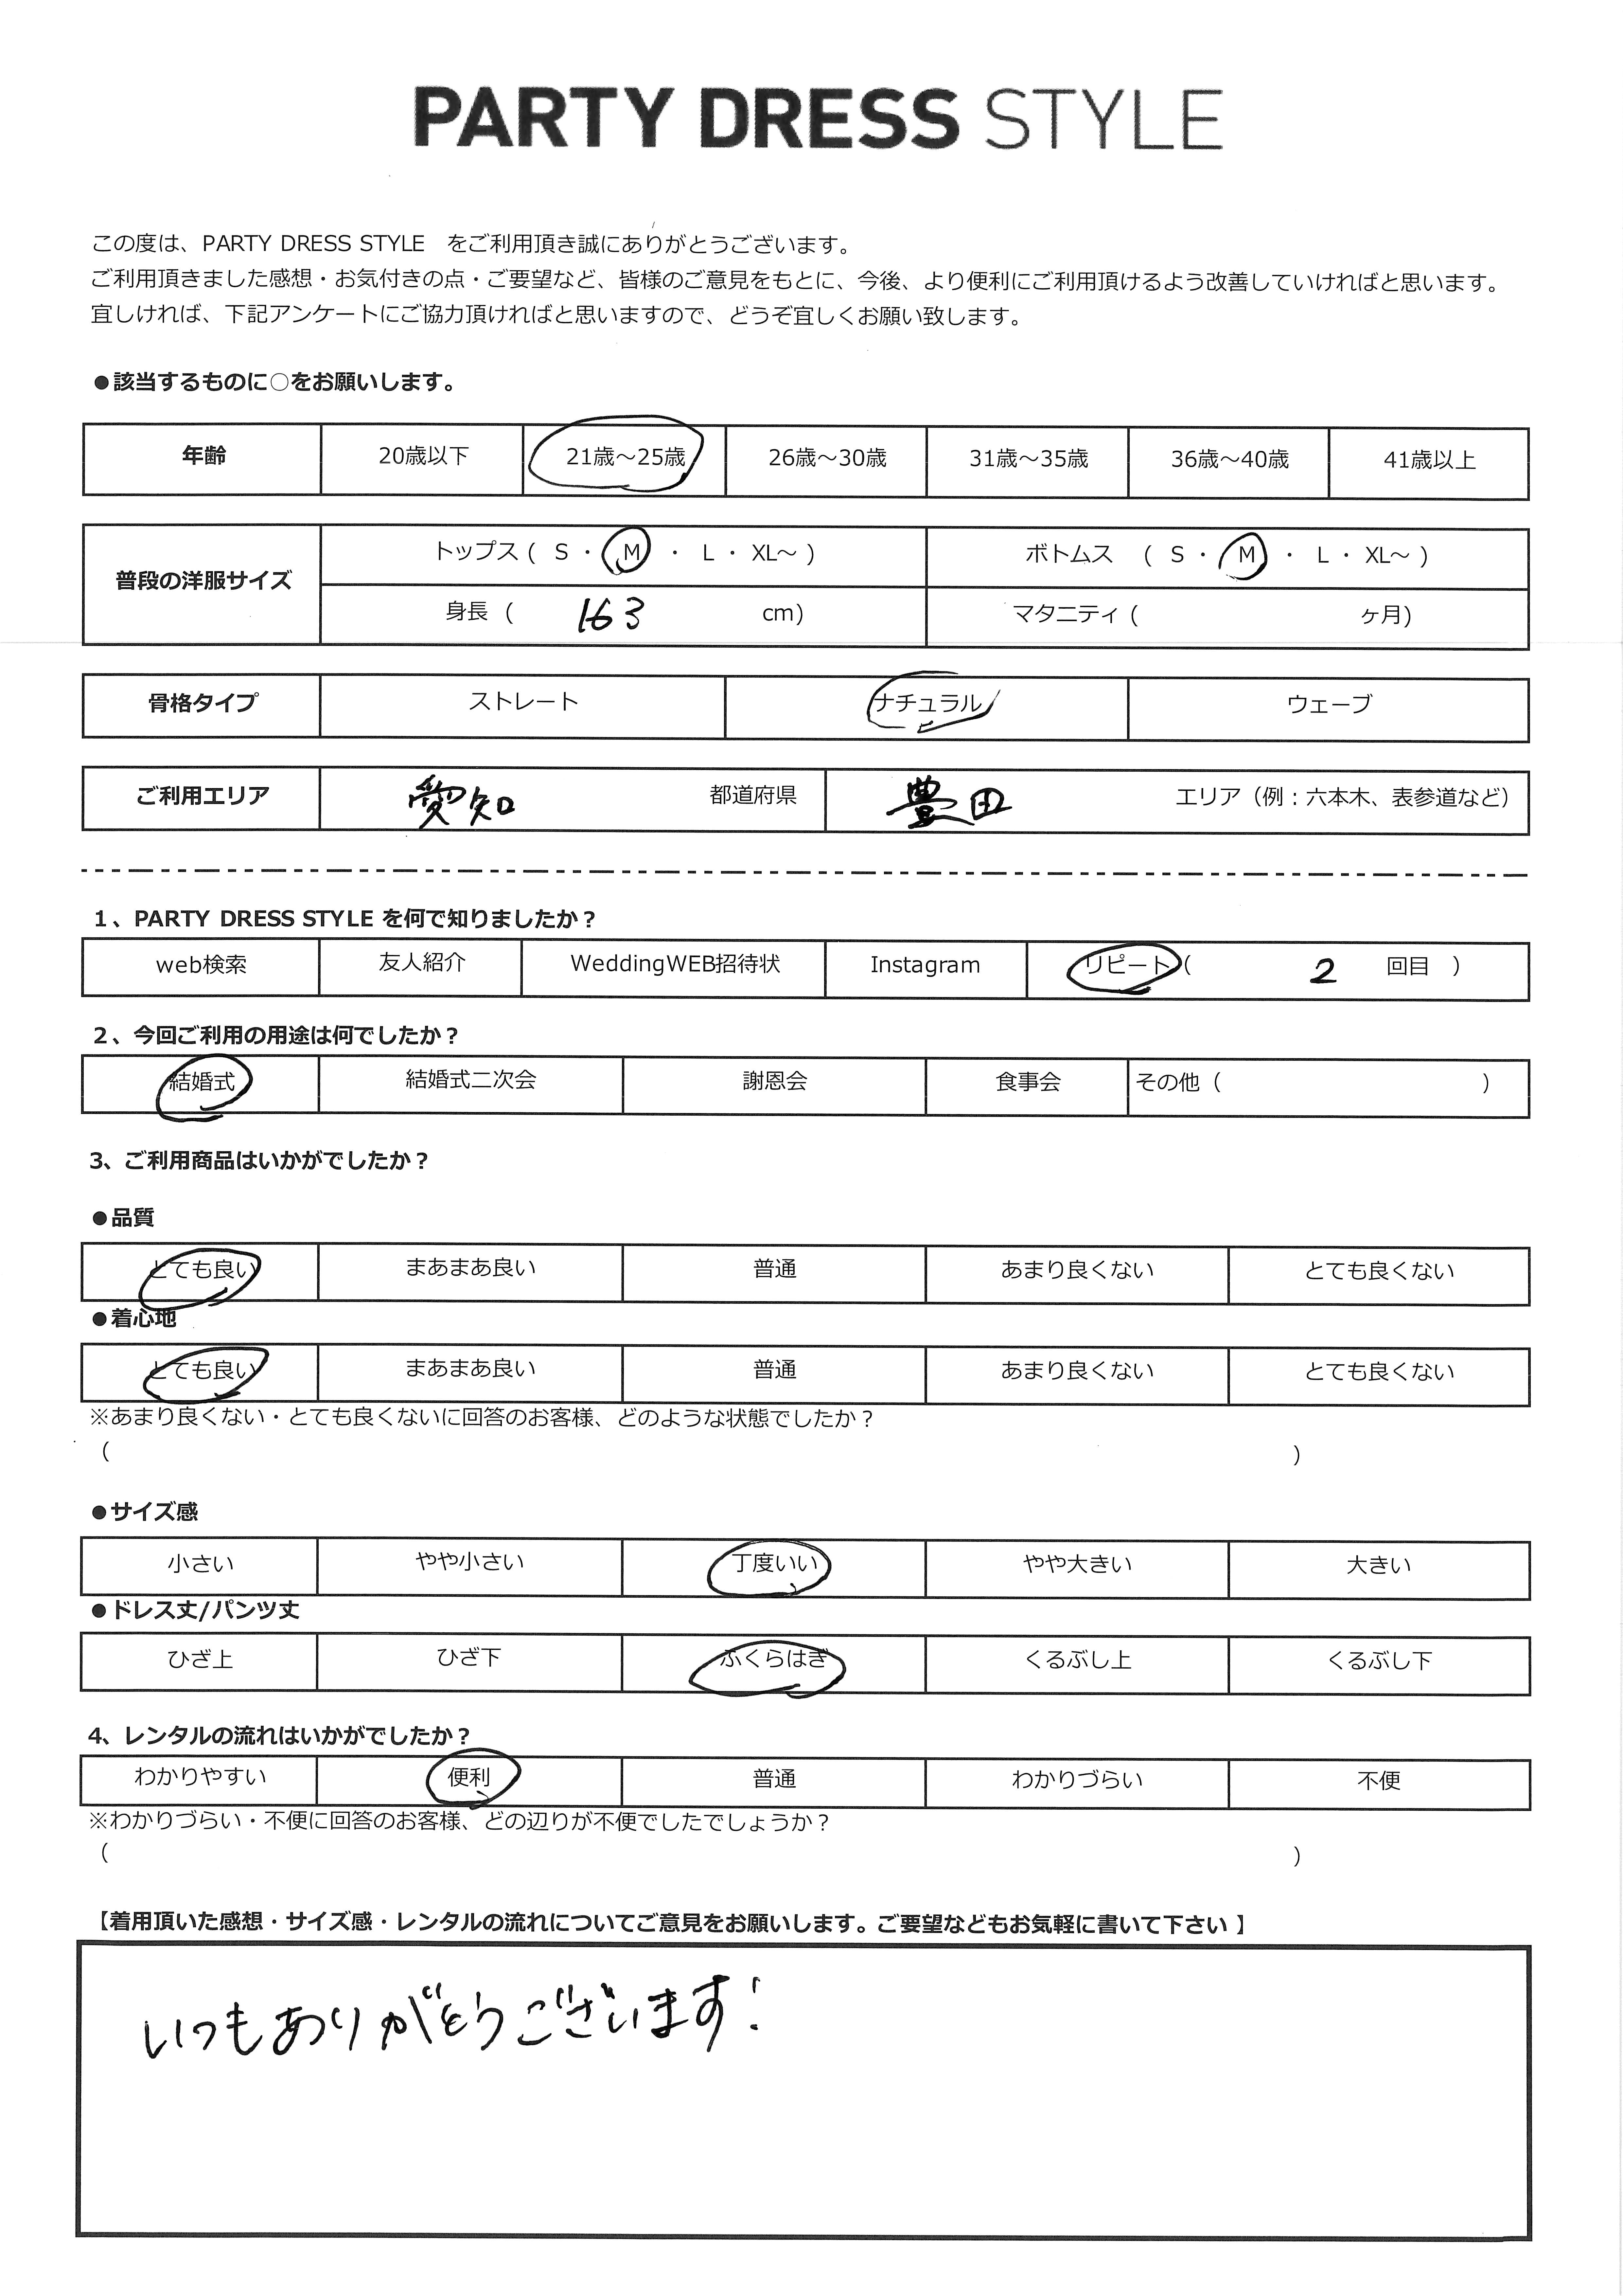 PARTY DRESS STYLE
この度は、PARTY DRESS STYLE　をご利用頂き誠にありがとうございます。
ご利用頂きました感想・お気付きの点・ご要望など、皆様のご意見をもとに、今後、より便利にご利用頂けるよう改善していければと思います。
宜しければ、下記アンケートにご協力頂ければと思いますので、どうぞ宜しくお願い致します。
●該当するものに○をお願いします。
年齢 20歳以下 21歳～25歳 26歳～30歳 31歳～35歳 36歳～40歳 41歳以上
普段の洋服サイズ トップス ( S ・ M ・ L ・ XL～ ) ボトムス ( S ・ M ・ L ・ XL～ )
身長 ( 163 cm) マタニティ ( ヶ月)
骨格タイプ ストレート ナチュラル ウェーブ
ご利用エリア 愛知 都道府県 豊田 エリア（例：六本木、表参道など）
1、PARTY DRESS STYLE を何で知りましたか？
web検索 友人紹介 WeddingWEB招待状 Instagram リピート ( 2 回目 )
2、今回ご利用の用途は何でしたか？
結婚式 結婚式二次会 謝恩会 食事会 その他 ( )
3、ご利用商品はいかがでしたか？
●品質
とても良い まあまあ良い 普通 あまり良くない とても良くない
●着心地
とても良い まあまあ良い 普通 あまり良くない とても良くない
※あまり良くない・とても良くないに回答のお客様、どのような状態でしたか？
( )
●サイズ感
小さい やや小さい 丁度いい やや大きい 大きい
●ドレス丈/パンツ丈
ひざ上 ひざ下 ふくらはぎ くるぶし上 くるぶし下
4、レンタルの流れはいかがでしたか？
わかりやすい 便利 普通 わかりづらい 不便
※わかりづらい・不便に回答のお客様、どの辺りが不便でしたでしょうか？
( )
【着用頂いた感想・サイズ感・レンタルの流れについてご意見をお願いします。ご要望などもお気軽に書いて下さい 】
いつもありがとうございます!